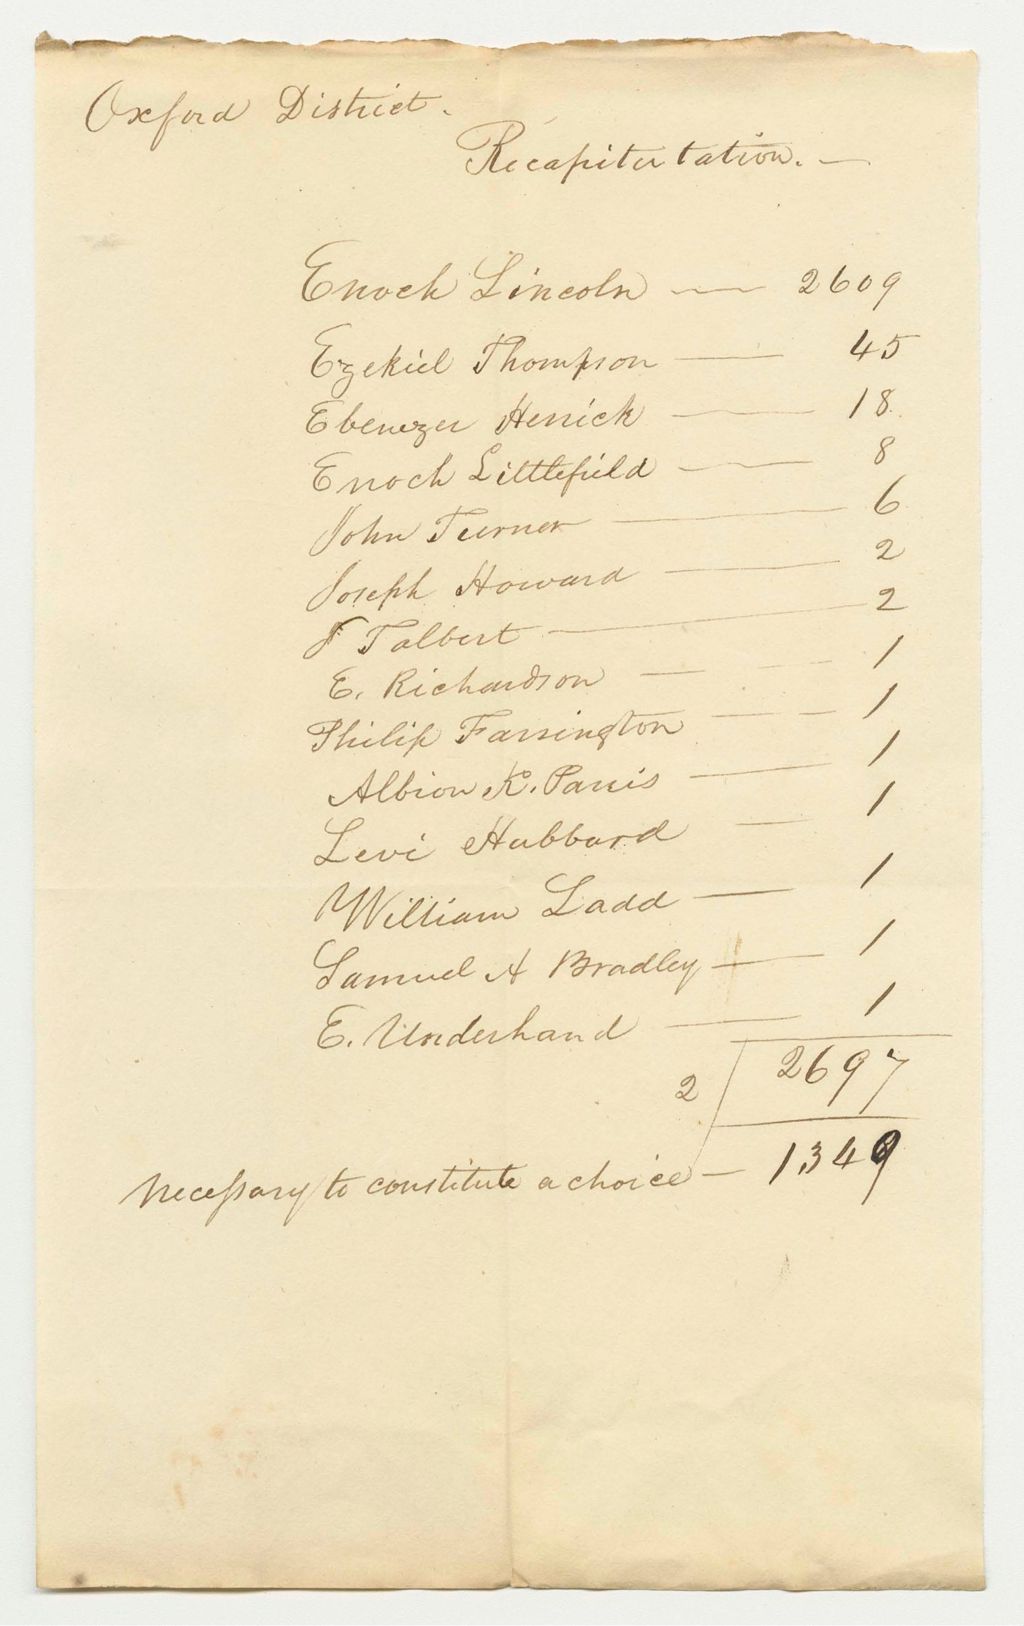 Oxford District.
Recapitulation. —
Enoch Lincoln — 2609
Ezekiel Thompson — 45
Ebenezer Herrick — 18
Enoch Littlefield — 8
John Turner — 6
Joseph Howard — 2
J Talbert — 2
E. Richardson — 1
Philip Farrington — 1
Albion K. Parris — 1
Levi Hubbard — 1
William Ladd — 1
Samuel A Bradley — 1
E. Underhand — 1
2 2697
Necessary to constitute a choice — 1349